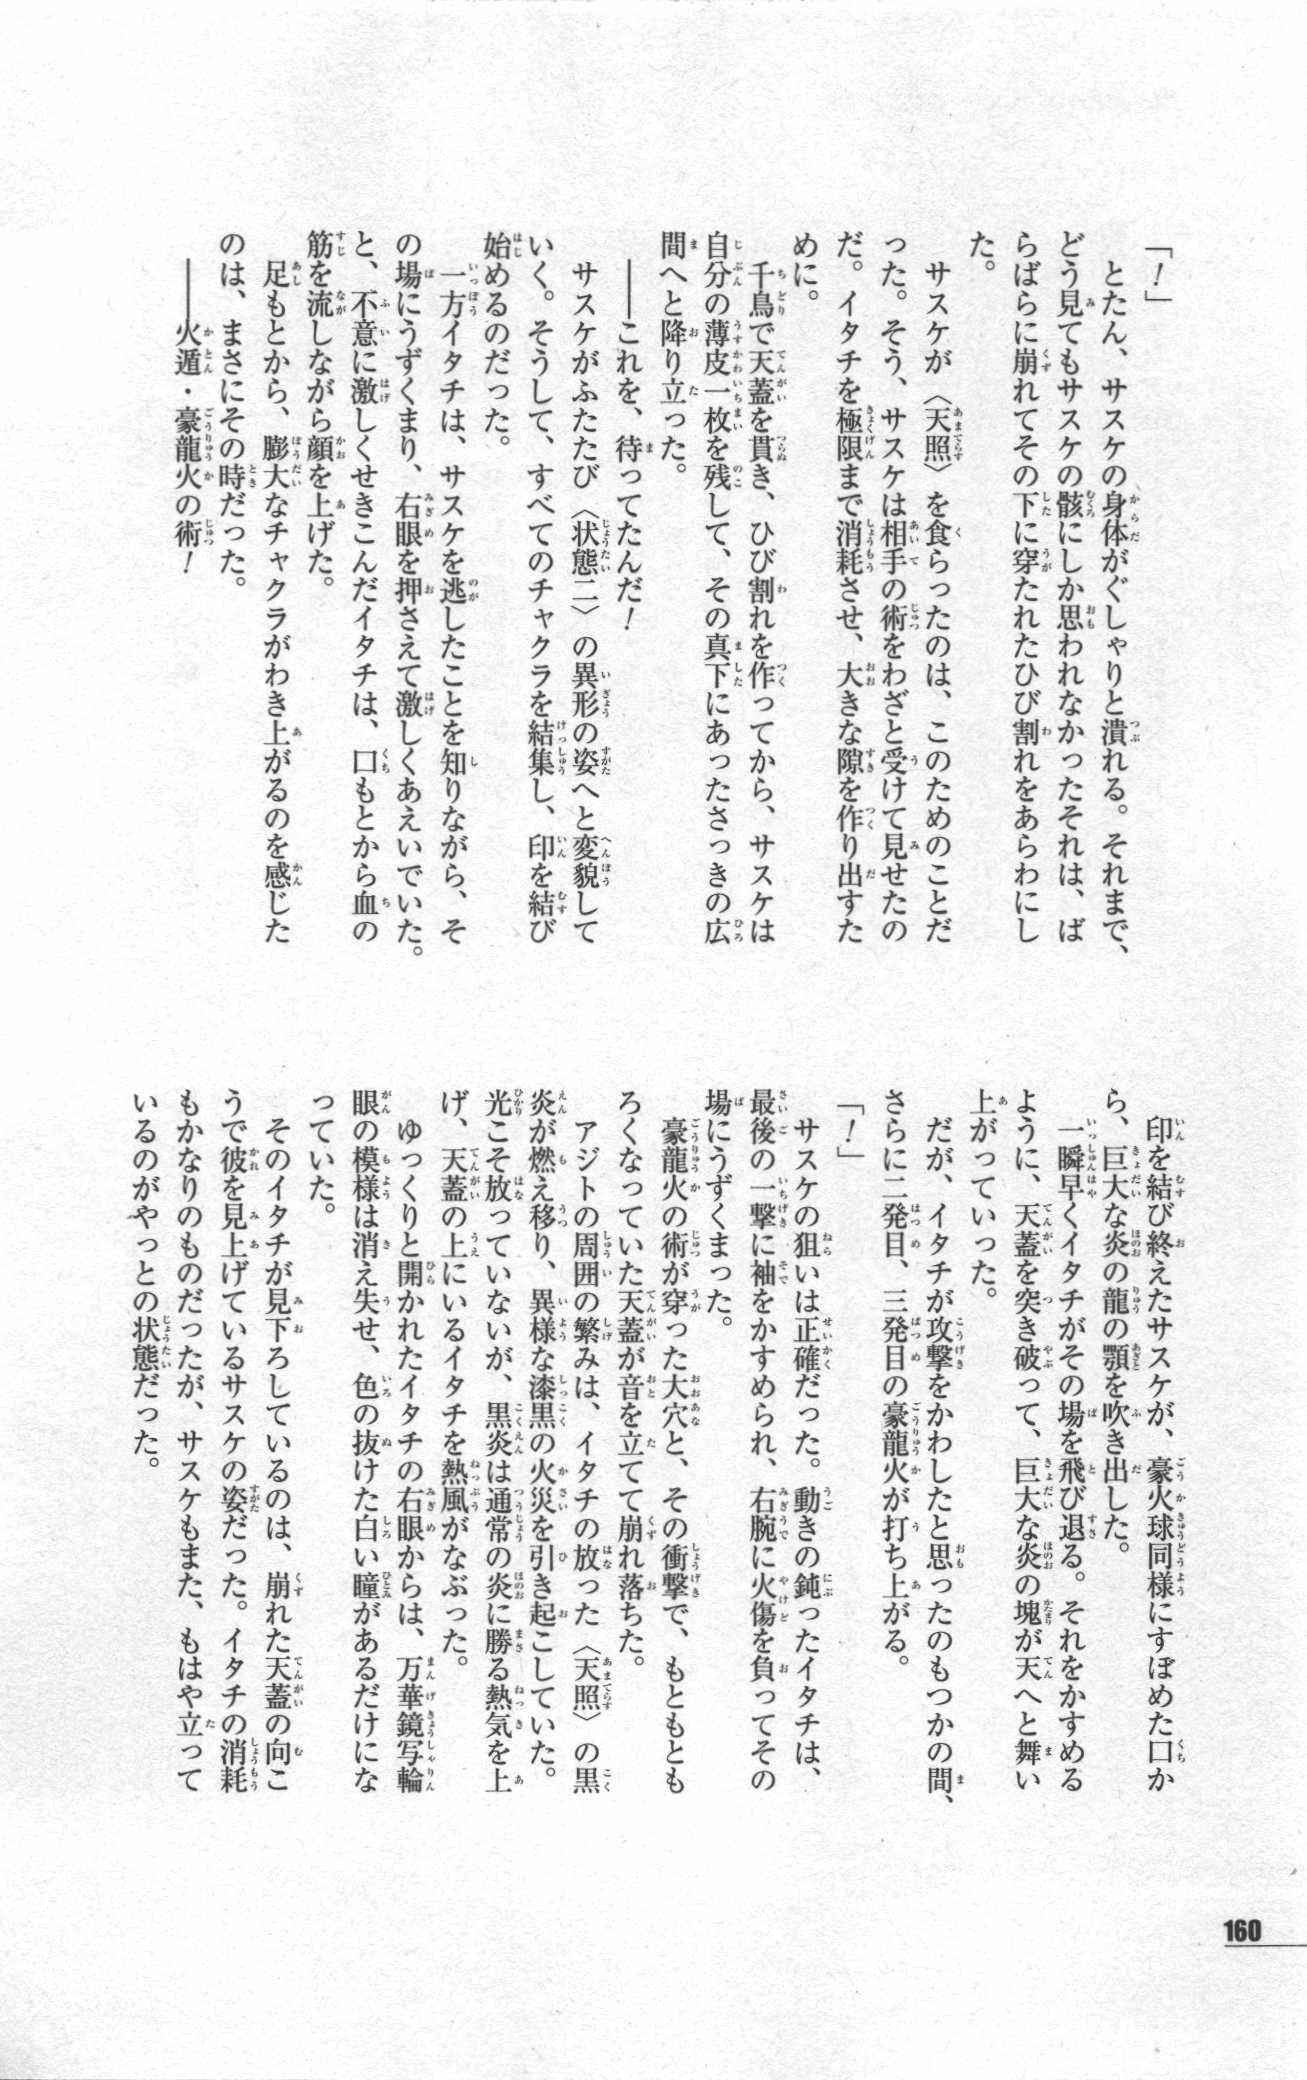 「！」
　とたん、サスケの身体がぐしゃりと潰れる。それまで、
どう見てもサスケの骸にしか思われなかったそれは、ば
らばらに崩れてその下に穿たれたひび割れをあらわにし
た。
　サスケが〈天照〉を食らったのは、このためのことだ
った。そう、サスケは相手の術をわざと受けて見せたの
だ。イタチを極限まで消耗させ、大きな隙を作り出すた
めに。
　千鳥で天蓋を貫き、ひび割れを作ってから、サスケは
自分の薄皮一枚を残して、その真下にあったさっきの広
間へと降り立った。
　――これを、待ってたんだ！
　サスケがふたたび〈状態二〉の異形の姿へと変貌して
いく。そうして、すべてのチャクラを結集し、印を結び
始めるのだった。
　一方イタチは、サスケを逃したことを知りながら、そ
の場にうずくまり、右眼を押さえて激しくあえいでいた。
と、不意に激しくせきこんだイタチは、口もとから血の
筋を流しながら顔を上げた。
　足もとから、膨大なチャクラがわき上がるのを感じた
のは、まさにその時だった。
　――火遁・豪龍火の術！
　印を結び終えたサスケが、豪火球同様にすぼめた口か
ら、巨大な炎の龍の顎を吹き出した。
　一瞬早くイタチがその場を飛び退る。それをかすめる
ように、天蓋を突き破って、巨大な炎の塊が天へと舞い
上がっていった。
　だが、イタチが攻撃をかわしたと思ったのもつかの間、
さらに二発目、三発目の豪龍火が打ち上がる。
「！」
　サスケの狙いは正確だった。動きの鈍ったイタチは、
最後の一撃に袖をかすめられ、右腕に火傷を負ってその
場にうずくまった。
　豪龍火の術が穿った大穴と、その衝撃で、もともとも
ろくなっていた天蓋が音を立てて崩れ落ちた。
　アジトの周囲の繁みは、イタチの放った〈天照〉の黒
炎が燃え移り、異様な漆黒の火災を引き起こしていた。
光こそ放っていないが、黒炎は通常の炎に勝る熱気を上
げ、天蓋の上にいるイタチを熱風がなぶった。
　ゆっくりと開かれたイタチの右眼からは、万華鏡写輪
眼の模様は消え失せ、色の抜けた白い瞳があるだけにな
っていた。
　そのイタチが見下ろしているのは、崩れた天蓋の向こ
うで彼を見上げているサスケの姿だった。イタチの消耗
もかなりのものだったが、サスケもまた、もはや立って
いるのがやっとの状態だった。
160